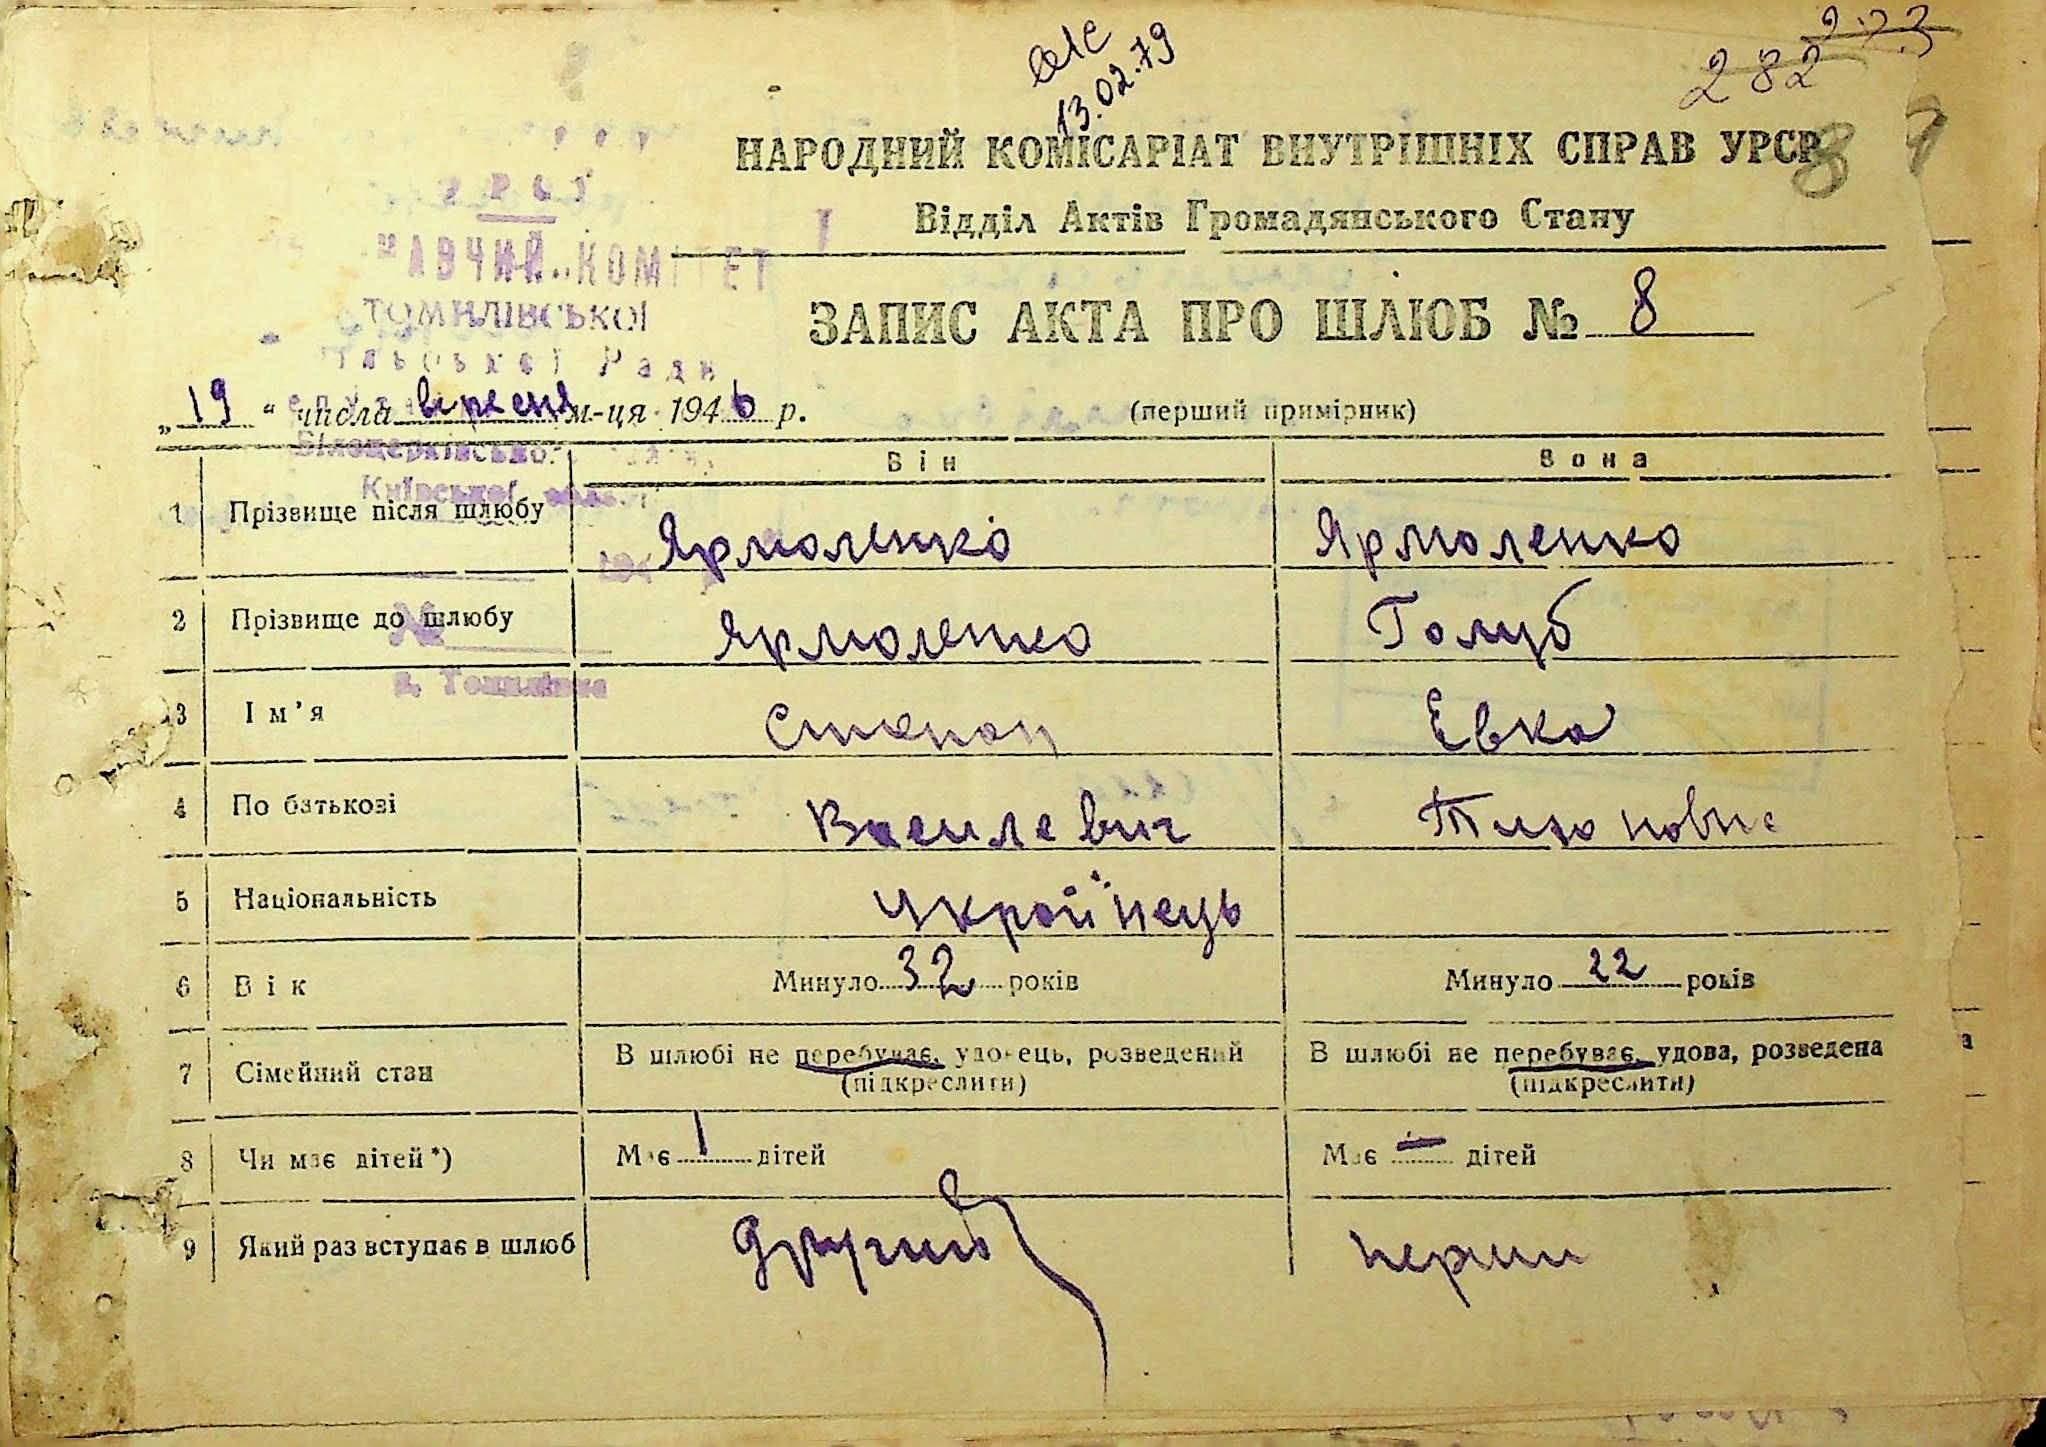 13.02.79
273
282
НАРОДНИЙ КОМІСАРІАТ ВНУТРІШНІХ СПРАВ УРСР
Відділ Актів Громадянського Стану
УРСР
КОМІТЕТ
ТОМИЛІВСЬКОЇ
Ради
Білоцерківсько
Київської
№
с. Томилівка
ЗАПИС АКТА ПРО ШЛЮБ № 8
„19“ числа вересня м-ця 1946 р. (перший примірник)
Він Вона
1 Прізвище після шлюбу Ярмоленко Ярмоленко
2 Прізвище до шлюбу Ярмоленко Голуб
3 Ім'я Степан Евка
4 По батькові Василевич
5 Національність Украйінець
6 Вік Минуло 32 років Минуло 22 років
7 Сімейний стан В шлюбі не перебуває, удовець, розведений В шлюбі не перебуває, удова, розведена
(підкреслити) (підкреслити)
8 Чи має дітей*) Має 1 дітей Має — дітей
9 Який раз вступає в шлюб другий перший